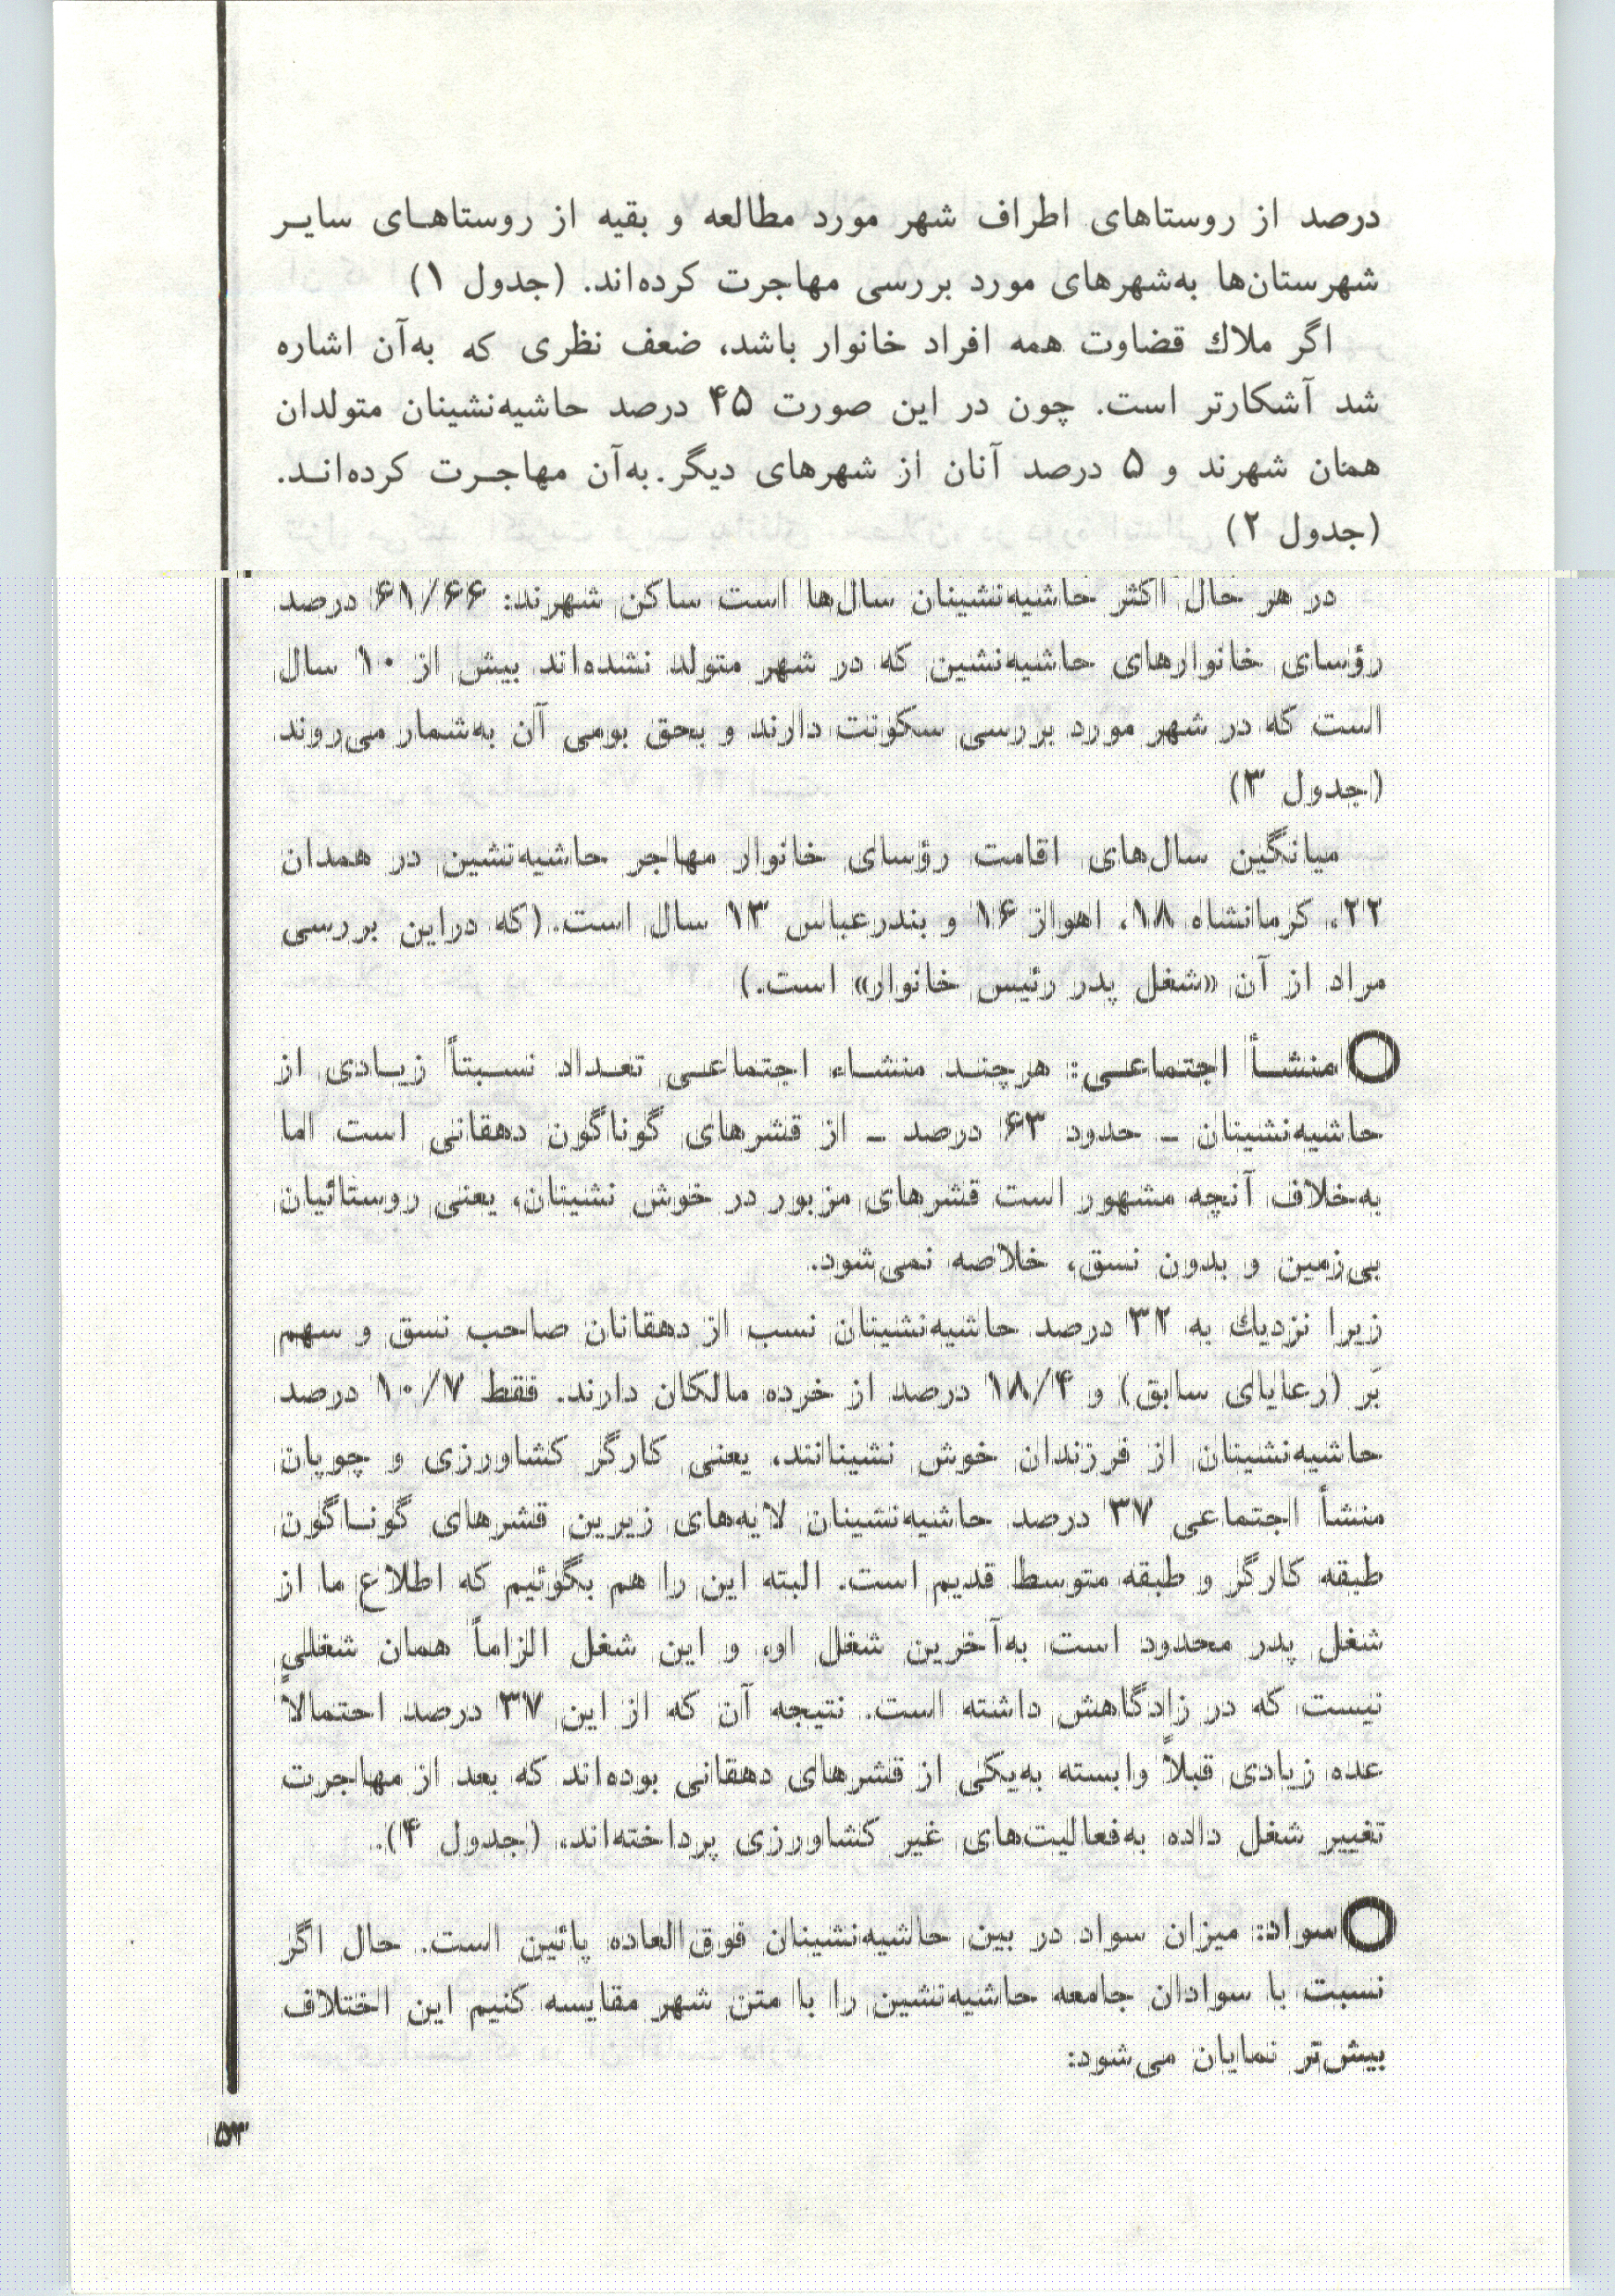 درصد از روستاهای اطراف شهر مورد مطالعه و بقیه از روستاهـای سایـر
شهرستان‌ها به‌شهرهای مورد بررسی مهاجرت کرده‌اند. (جدول ۱)
اگر ملاك قضاوت همه افراد خانوار باشد، ضعف نظری که به‌آن اشاره
شد آشکارتر است. چون در این صورت ۴۵ درصد حاشیه‌نشینان متولدان
همان شهرند و ۵ درصد آنان از شهرهای دیگر.به‌آن مهاجـرت کرده‌انـد.
(جدول ۲)
در هر حال اکثر حاشیه‌نشینان سال‌ها است ساکن شهرند: ۶۱/۶۶ درصد
رؤسای خانوارهای حاشیه‌نشین که در شهر متولد نشده‌اند بیش از ۱۰ سال
است که در شهر مورد بررسی سکونت دارند و بحق بومی آن به‌شمار می‌روند
(جدول ۳)
میانگین سال‌های اقامت رؤسای خانوار مهاجر حاشیه‌نشین در همدان
۲۲، کرمانشاه ۱۸، اهواز ۱۶ و بندرعباس ۱۳ سال است. (که دراین بررسی
مراد از آن «شغل پدر رئیس خانوار» است.)
منشـأ اجتماعـی: هرچنـد منشـاء اجتماعـی تعـداد نسـبتاً زیـادی از
حاشیه‌نشینان ـ حدود ۶۳ درصد ـ از قشرهای گوناگون دهقانی است اما
به‌خلاف آنچه مشهور است قشرهای مزبور در خوش نشینان، یعنی روستائیان
بی‌زمین و بدون نسق، خلاصه نمی‌شود.
زیرا نزدیك به ۳۲ درصد حاشیه‌نشینان نسب از دهقانان صاحب نسق و سهم
بَر (رعایای سابق) و ۱۸/۴ درصد از خرده مالکان دارند. فقط ۱۰/۷ درصد
حاشیه‌نشینان از فرزندان خوش نشینانند، یعنی کارگر کشاورزی و چوپان
منشأ اجتماعی ۳۷ درصد حاشیه‌نشینان لایه‌های زیرین قشرهای گونـاگون
طبقه کارگر و طبقه متوسط قدیم است. البته این را هم بگوئیم که اطلاع ما از
شغل پدر محدود است به‌آخرین شغل او، و این شغل الزاماً همان شغلی
نیست که در زادگاهش داشته است. نتیجه آن که از این ۳۷ درصد احتمالاً
عده زیادی قبلاً وابسته به‌یکی از قشرهای دهقانی بوده‌اند که بعد از مهاجرت
تغییر شغل داده به‌فعالیت‌های غیر کشاورزی پرداخته‌اند، (جدول ۴).
سواد: میزان سواد در بین حاشیه‌نشینان فوق‌العاده پائین است. حال اگر
نسبت با سوادان جامعه حاشیه‌نشین را با متن شهر مقایسه کنیم این اختلاف
بیش‌تر نمایان می‌شود:
۵۳